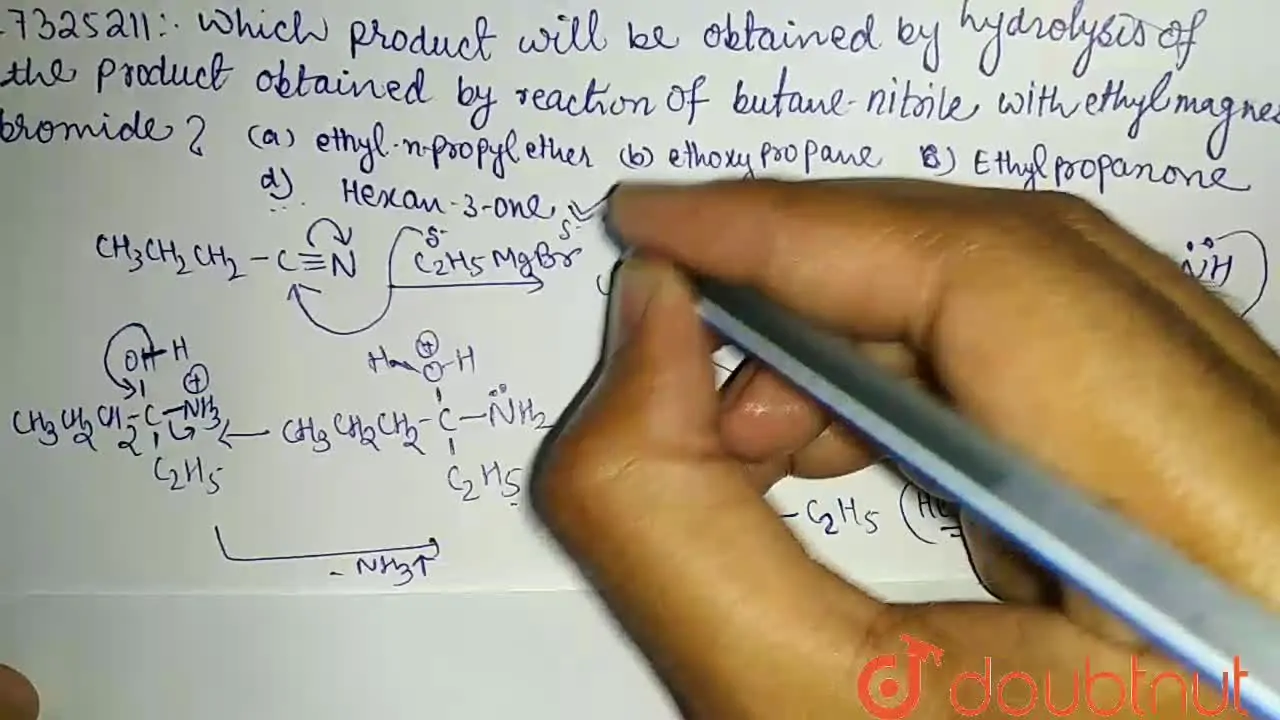 7325211:. Which product will be obtained by hydrolysis of
the product obtained by reaction of butane-nitrile with ethylmagnes
bromide? (a) ethyl-n-propyl ether (b) ethoxy propane B) Ethylpropanone
d) Hexan-3-one. ✓
CH3CH2CH2-C≡N C2H5MgBr NH
δ- δ-
OH H H O H
⊕ ⊕
CH3CH2CH2-C-NH3 ← CH3CH2CH2-C-NH2
C2H5 C2H5 -C2H5
- NH3↑
doubtnut